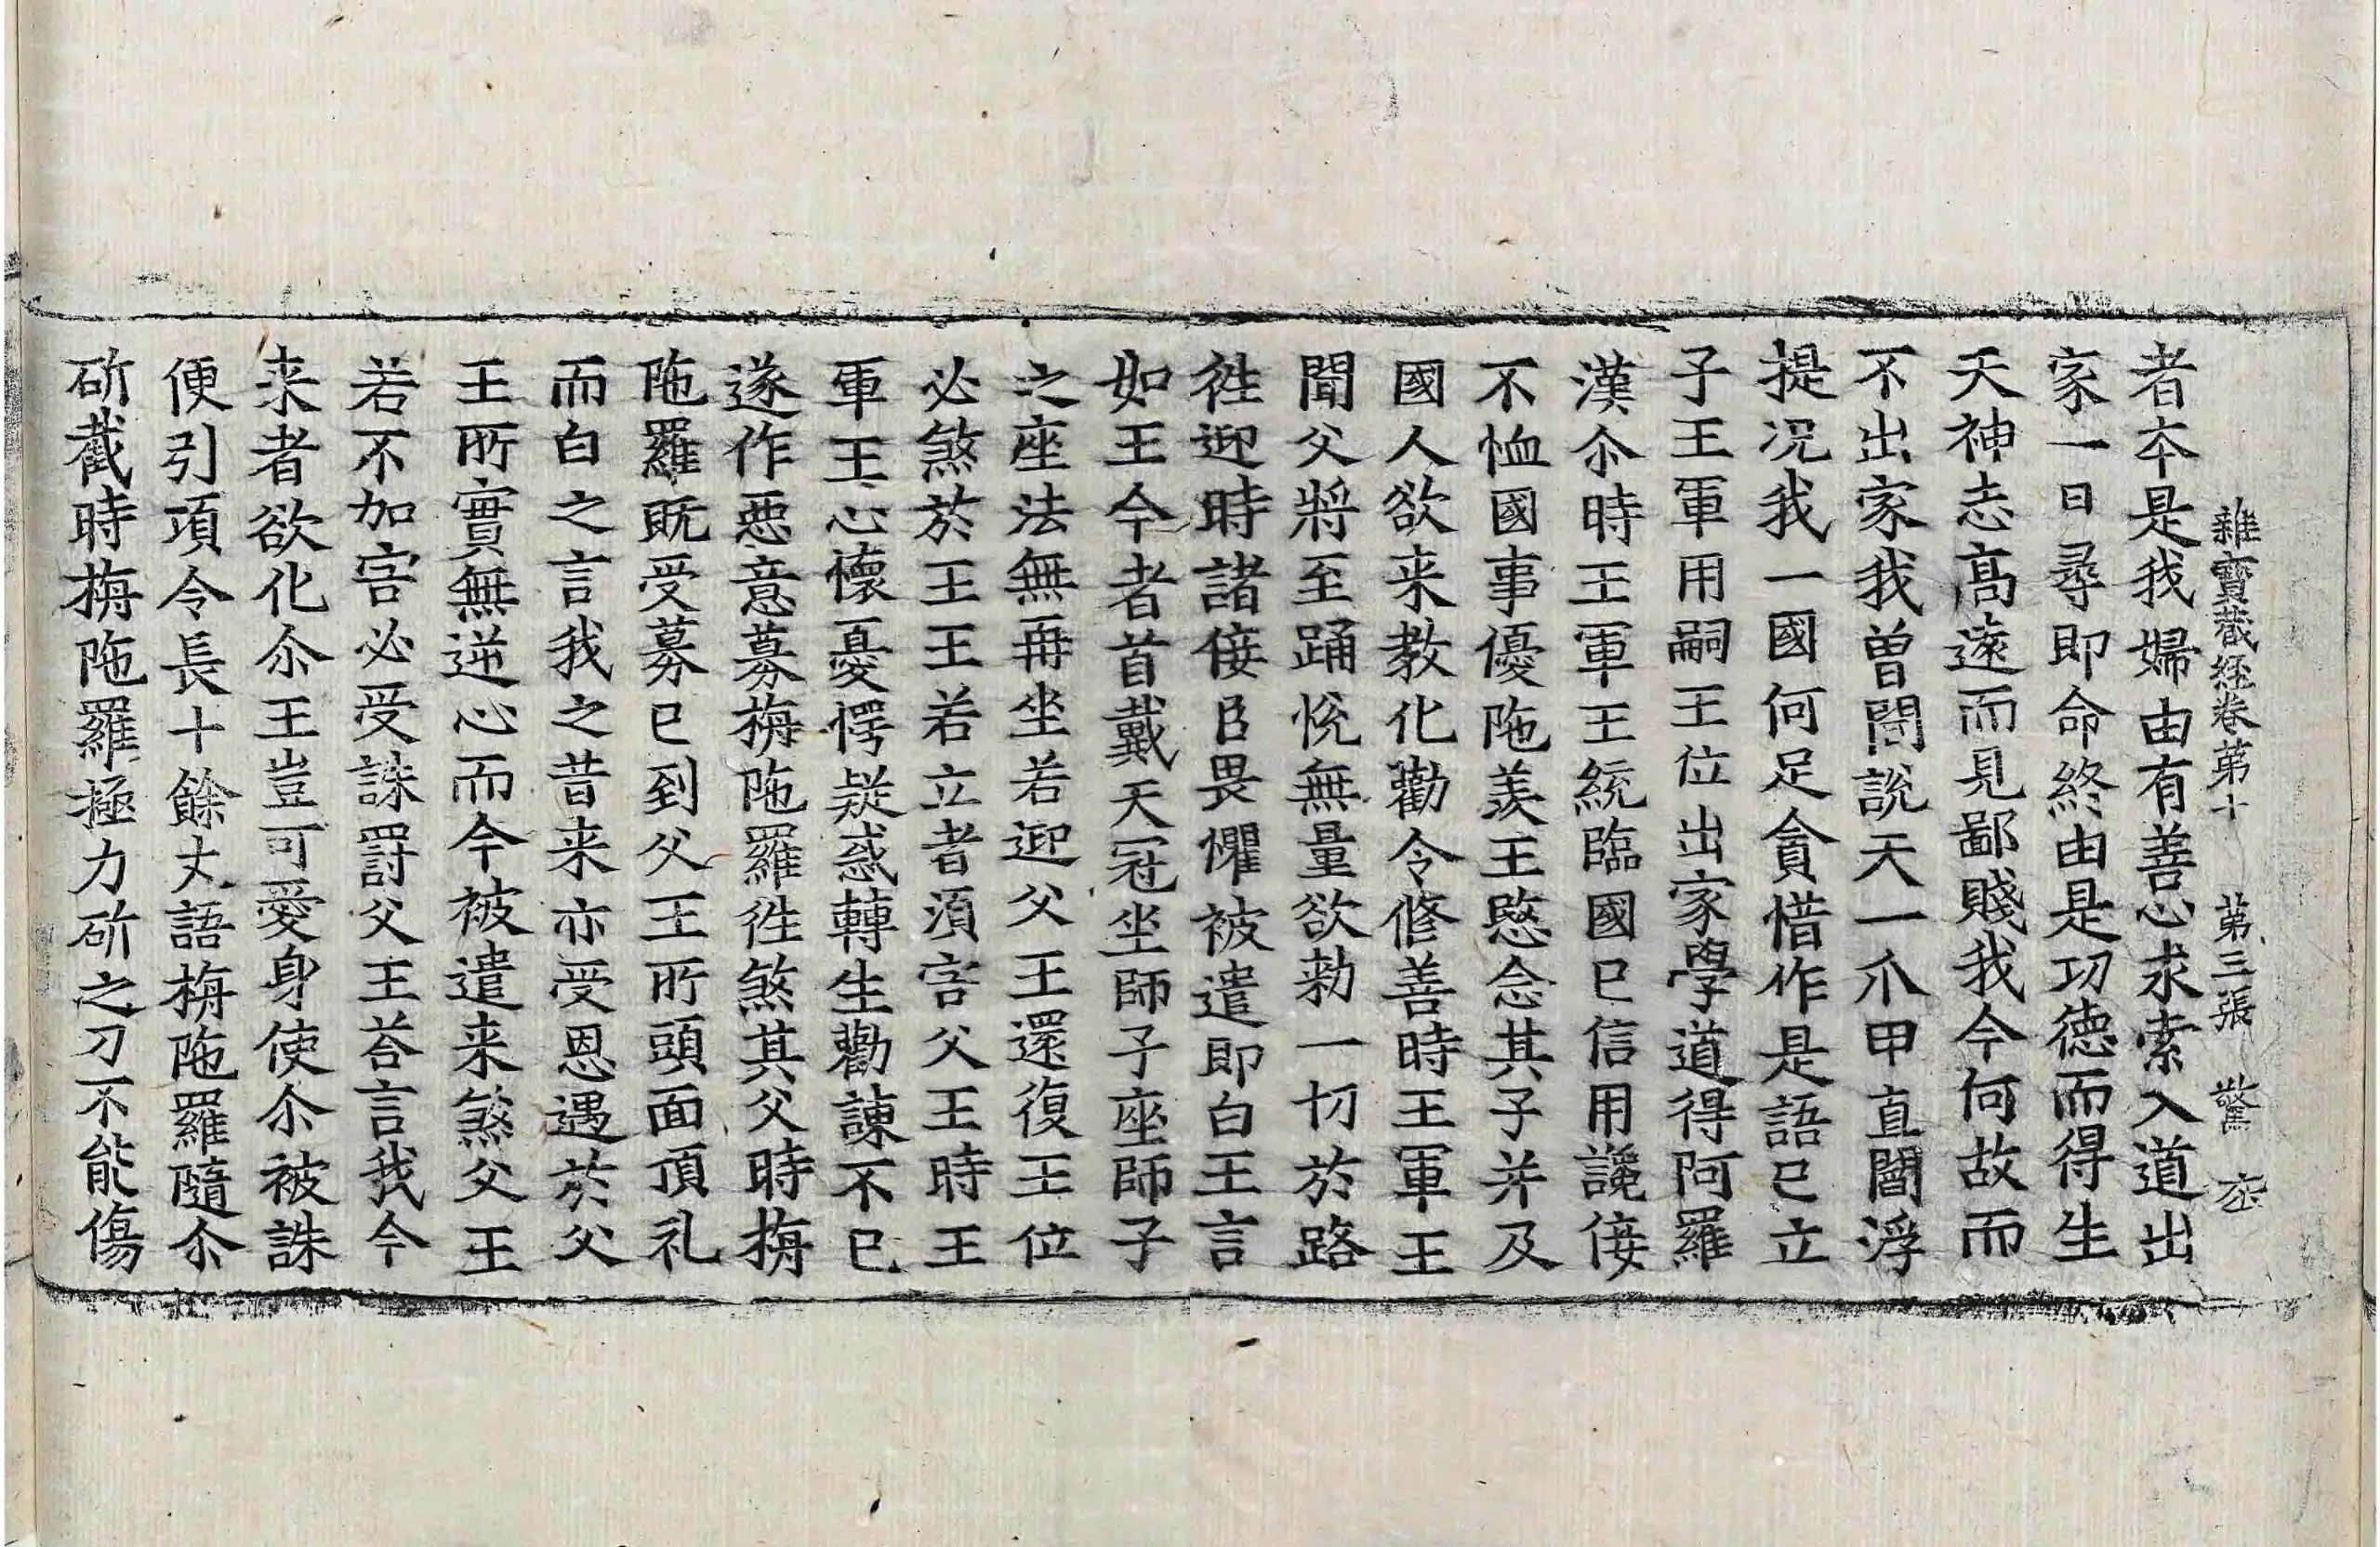 雜寶藏經卷第十　第三張　驚
者本是我婦由有善心求索入道出
家一日尋即命終由是功德而得生
天神志高遠而見鄙賤我今何故而
不出家我曽聞說天一爪甲直閻浮
提况我一國何足貪惜作是語已立
子王軍用嗣王位出家學道得阿羅
漢尒時王軍王統臨國已信用讒佞
不恤國事優陁羨王愍念其子并及
國人欲来教化勸令修善時王軍王
聞父將至踊悅無量欲勑一切於路
徃迎時諸佞臣畏懼被遣即白王言
如王今者首戴天冠坐師子座師子
之座法無再坐若迎父王還復王位
必煞於王王若立者湏害父王時王
軍王心懷憂愕疑惑轉生勸諫不已
遂作惡意募栴陁羅徃煞其父時栴
陁羅既受募已到父王所頭面頂礼
而白之言我之昔来亦受恩遇於父
王所實無逆心而今被遣来煞父王
若不加害必受誅罸父王荅言我今
来者欲化尒王豈可愛身使尒被誅
便引項令長十餘丈語栴陁羅隨尒
斫截時栴陁羅極力斫之刀不能傷